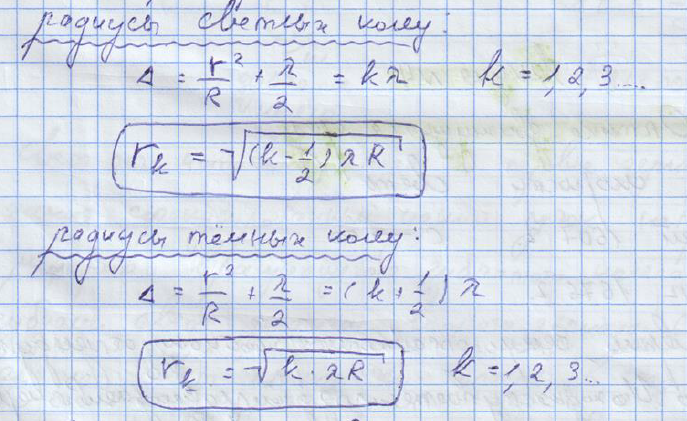 радиусы светлых колец:
Δ = r²/R + λ/2 = kλ k = 1, 2, 3....
r_k = √((k - 1/2) λR)
радиусы тёмных колец:
Δ = r²/R + λ/2 = (k + 1/2) λ
r_k = √(k · λR) k = 1, 2, 3...